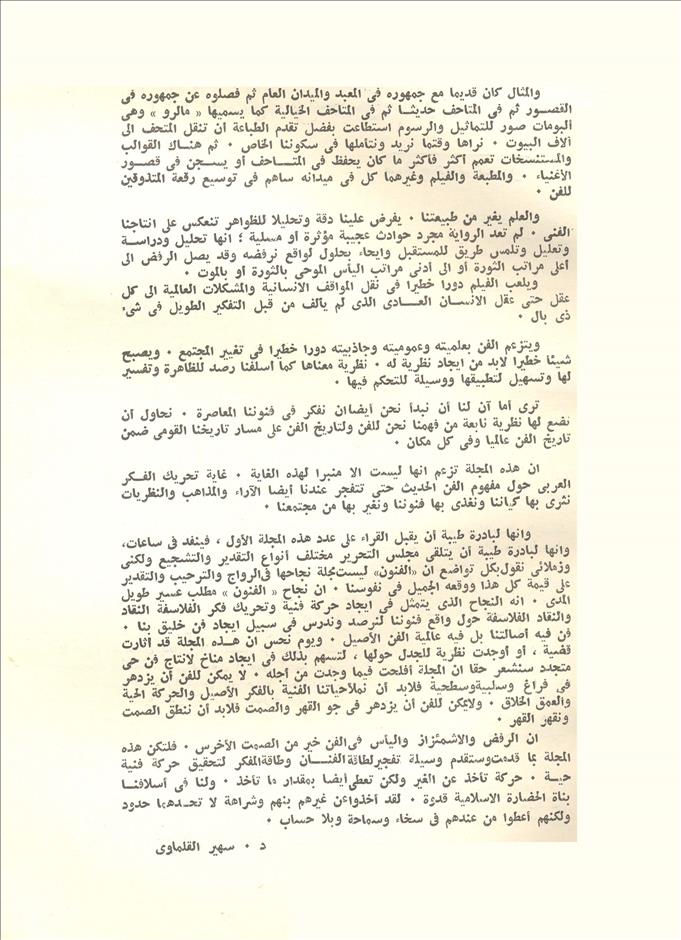 والمثال كان قديما مع جمهوره فى المعبد والميدان العام ثم فصلوه عن جمهوره فى
القصــور ثم فى المتاحف حديثــا ثم فى المتاحف الخيالية كما يسميها « مالرو » وهى
ألبومات صور للتماثيل والرسوم استطاعت بفضل تقدم الطباعة أن تنقل المتحف الى
آلاف البيوت ٠ نراها وقتما نريد ونتأملها فى سكوننا الخاص ٠ ثم هنــاك القوالب
والمستنسخات تعمم أكثر فأكثر ما كان يحفظ فى المتــاحف أو يسـجن فى قصــور
الأغنياء ٠ والمطبعة والفيلم وغيرهما كل فى ميدانه ساهم فى توسيع رقعة المتذوقين
للفن ٠
والعلم يغير من طبيعتنا ٠ يفرض علينا دقة وتحليلا للظواهر تنعكس على انتاجنا
الفنى ٠ لم تعد الرواية مجرد حوادث عجيبة مؤثرة أو مسلية ؛ انها تحليل ودراســة
وتعليل وتلمس طريق للمستقبل وايحاء بحلول لواقع نرفضه وقد يصل الرفض الى
أعلى مراتب الثورة أو الى أدنى مراتب اليأس الموحى بالثورة أو بالموت ٠
ويلعب الفيلم دورا خطيرا فى نقل المواقف الانسانية والمشكلات العالمية الى كل
عقل حتى عقل الانسـان العــادى الذى لم يألف من قبل التفكير الطويل فى شىء
ذى بال ٠
ويتزعم الفن بعلميته وعموميته وجاذبيته دورا خطيرا فى تغيير المجتمع ٠ ويصبح
شيئا خطيرا لابد من ايجاد نظرية له ٠ نظرية معناها كما أسلفنا رصد للظاهرة وتفسير
لها وتسهيل لتطبيقها ووسيلة للتحكم فيها ٠
ترى أما آن لنا أن نبدأ نحن أيضاان نفكر فى فنوننا المعاصرة ٠ نحاول أن
نضع لها نظرية نابعة من فهمنا نحن للفن ولتاريخ الفن على مسار تاريخنا القومى ضمن
تاريخ الفن عالميا وفى كل مكان ٠
ان هذه المجلة تزعم انها ليست الا منبرا لهذه الغاية ٠ غاية تحريك الفــكر
العربى حول مفهوم الفن الحديث حتى تتفجر عندنا أيضا الآراء والمذاهب والنظريات
نثرى بها كياننا ونغذى بها فنوننا ونغير بها من مجتمعنا ٠
وانها لبادرة طيبة أن يقبل القراء على عدد هذه المجلة الأول ، فينفد فى ساعات،
وانها لبادرة طيبة أن يتلقى مجلس التحرير مختلف أنواع التقدير والتشجيع ولكنى
وزملائى نقول بكل تواضع ان «الفنون» ليست مجلة نجاحها فى الرواج والترحيب والتقدير
على قيمة كل هذا ووقعه الجميل فى نفوسنا ٠ ان نجاح « الفنون » مطلب عسير طويل
المدى ٠ انه النجاح الذى يتمثل فى ايجاد حركة فنية وتحريك فكر الفلاسفة النقاد
والنقاد الفلاسفة حول واقع فنوننا لنرصد وندرس فى سبيل ايجاد فن خليق بنا ٠
فن فيه أصالتنا بل فيه عالمية الفن الأصيل ٠ ويوم نحس ان هــذه المجلة قد أثارت
قضية ، أو أوجدت نظرية للجدل حولها ، لتسهم بذلك فى ايجاد مناخ لانتاج فن حى
متجدد سنشعر حقا ان المجلة أفلحت فيما وجدت من أجله ٠ لا يمكن للفن أن يزدهر
فى فراغ وسلبية وسطحية فلابد أن نملأ حياتنا الفنية بالفكر الأصيل والحركة الحية
والعمق الخلاق ٠ ولا يمكن للفن أن يزدهر فى جو القهر والصمت فلابد أن ننطق الصمت
ونقهر القهر ٠
ان الرفض والاشمئزاز واليأس فى الفن خير من الصمت الأخرس ٠ فلتكن هذه
المجلة بما قدمت وستقدم وسيلة تفجير لطاقة الفنــان وطاقة المفكر لتحقيق حركة فنية
حيــة ٠ حركة تأخذ عن الغير ولكن تعطى أيضا بمقدار ما تأخذ ٠ ولنا فى أسلافنــا
بناة الحضارة الاسلامية قدوة ٠ لقد أخذوا عن غيرهم بنهم وشراهة لا تحــدهما حدود
ولكنهم أعطوا من عندهم فى سخاء وسماحة وبلا حساب ٠
د ٠ سهير القلماوى